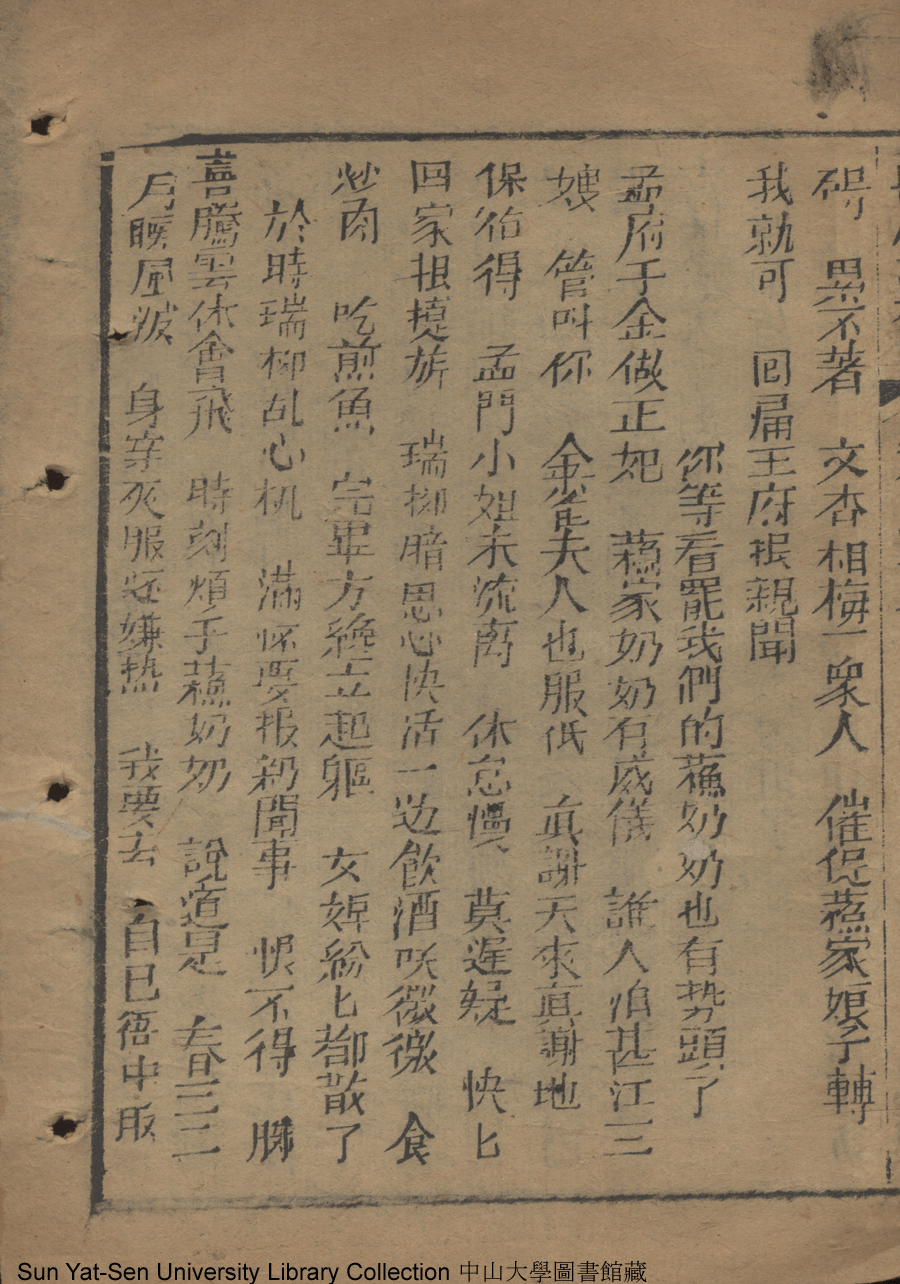 碍 累不著 文杏相梅一衆人 催促蘓家娘子轉
我就可 回扁王府报親聞
你等看罷我們的蘓奶奶也有势頭了
孟府千金做正妃 蘓家奶奶有威儀 誰人怕甚江三
嫂 管叫你 金雀夫人也服低 真謝天來真謝地
保佑得 孟門小姐未流离 休怠慢 莫遲疑 快匕
回家报提旂 瑞柳暗思心快活一边飲酒咲微微 食
炒肉 吃煎魚 完畢方纔立起軀 女婢紛匕都散了
於時瑞柳乱心机 滿怀要报親聞事 恨不得 脚
喜騰雲休會飛 時刻煩乎蘓奶奶 說道是 春三二
月暖風波 身穿灰服还嫌热 我要去 自己徔中取
Sun Yat-Sen University Library Collection 中山大學圖書館藏